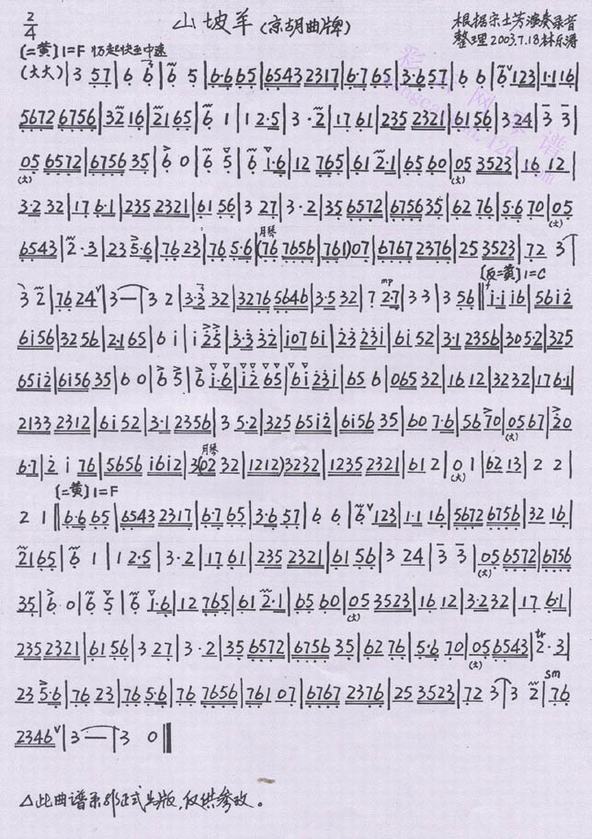 2/4
山坡羊 (京胡曲牌)
根据宗士芳演奏录音
整理 2003.7.18 林乐涛
[二黄] 1=F
(大大) | 3 57 | 6 6 | 6 5 | 6·665 | 6543 2317 | 6·7 65 | 3·6 57 | 6 6 | 6 123 | 1·1 16 |
5672 6756 | 32 16 | 21 65 | 6 1 | 1 2·5 | 3 · 2 | 17 61 | 235 2321 | 61 56 | 3 24 | 3 3 |
05 6572 | 6756 35 | 6 0 | 6 5 | 6 1·6 | 12 765 | 61 2·1 | 65 60 | 05 3523 | 16 12 |
(大) (大)
3·2 32 | 17 6·1 | 235 2321 | 61 56 | 3 27 | 3 · 2 | 35 6572 | 6756 35 | 62 76 | 5·6 70 | 05
(大)
月琴
6543 | 2 · 3 | 23 5·6 | 76 23 | 76 5·6 | (76 7656 | 761) 07 | 6767 2376 | 25 3523 | 72 3 |
[反二黄] 1=C
3 2 | 76 24 | 3 — | 3 2 | 3·3 32 | 3276 5646 | 3·5 32 | 7 2·7 | 3 3 | 3 56 || i·i i6 | 56 i2
mp
6i56 | 32 56 | 2·1 65 | 6 i | i 25 | 3·3 32 | i07 6i | 23 23i | 6i 52 | 3·1 2356 | 305·2 | 325
65i2 | 6i56 35 | 6 0 | 6 5 | 6 i·6 | i2 65 | 6i 23i | 65 6 | 065 32 | 16 12 | 3232 | 17 6·1 |
2133 2312 | 6i 52 | 3·1 2356 | 3 5·2 | 325 65i2 | 6i56 35 | 60 7·6 | 56 70 | 05 67 | 20
(大)
月琴
6·7 | 2 i 76 | 5656 i6i2 | 3(02 32 | 1212) 3232 | 1235 2321 | 61 2 | 0 1 | 62 13 | 2 2 |
(大)
[二黄] 1=F
2 1 || 6·6 65 | 6543 2317 | 6·7 65 | 3·6 57 | 6 6 | 6 123 | 1·1 16 | 5672 6756 | 32 16 |
21 65 | 6 1 | 1 2·5 | 3 · 2 | 17 61 | 235 2321 | 61 56 | 3 24 | 3 3 | 05 6572 | 6756
(大)
35 | 6 · 0 | 6 5 | 6 1·6 | 12 765 | 61 2·1 | 65 60 | 05 3523 | 16 12 | 3·2 32 | 17 6·1 |
(大)
235 2321 | 61 56 | 3 27 | 3 · 2 | 35 6572 | 6756 35 | 62 76 | 5·6 70 | 05 6543 | 2 · 3 |
(大) tr
23 5·6 | 76 23 | 76 5·6 | 76 7656 | 761 07 | 6767 2376 | 25 3523 | 72 3 | 3 2 | 76
sm
2346 | 3 — | 3 0 ||
△此曲谱系非正式出版,仅供参考。